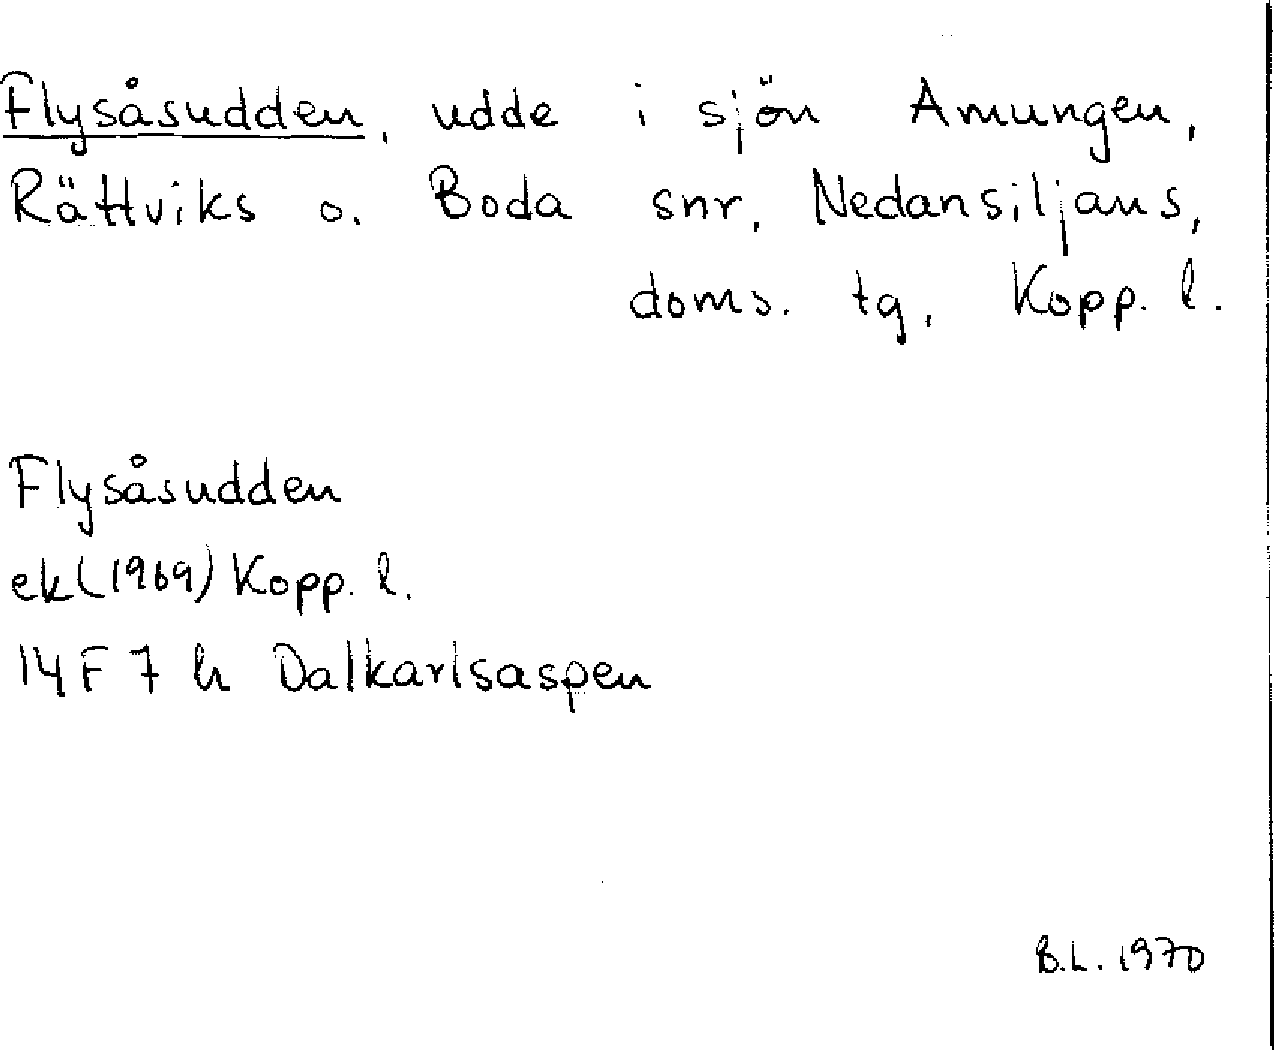 Flysåsudden, udde i sjön Amungen,
Rättviks o. Boda snr, Nedansiljans,
doms. tg, Kopp. l.
Flysåsudden
ek(1969) Kopp. l.
14F 7 h Dalkarlsaspen
B.L. 1970